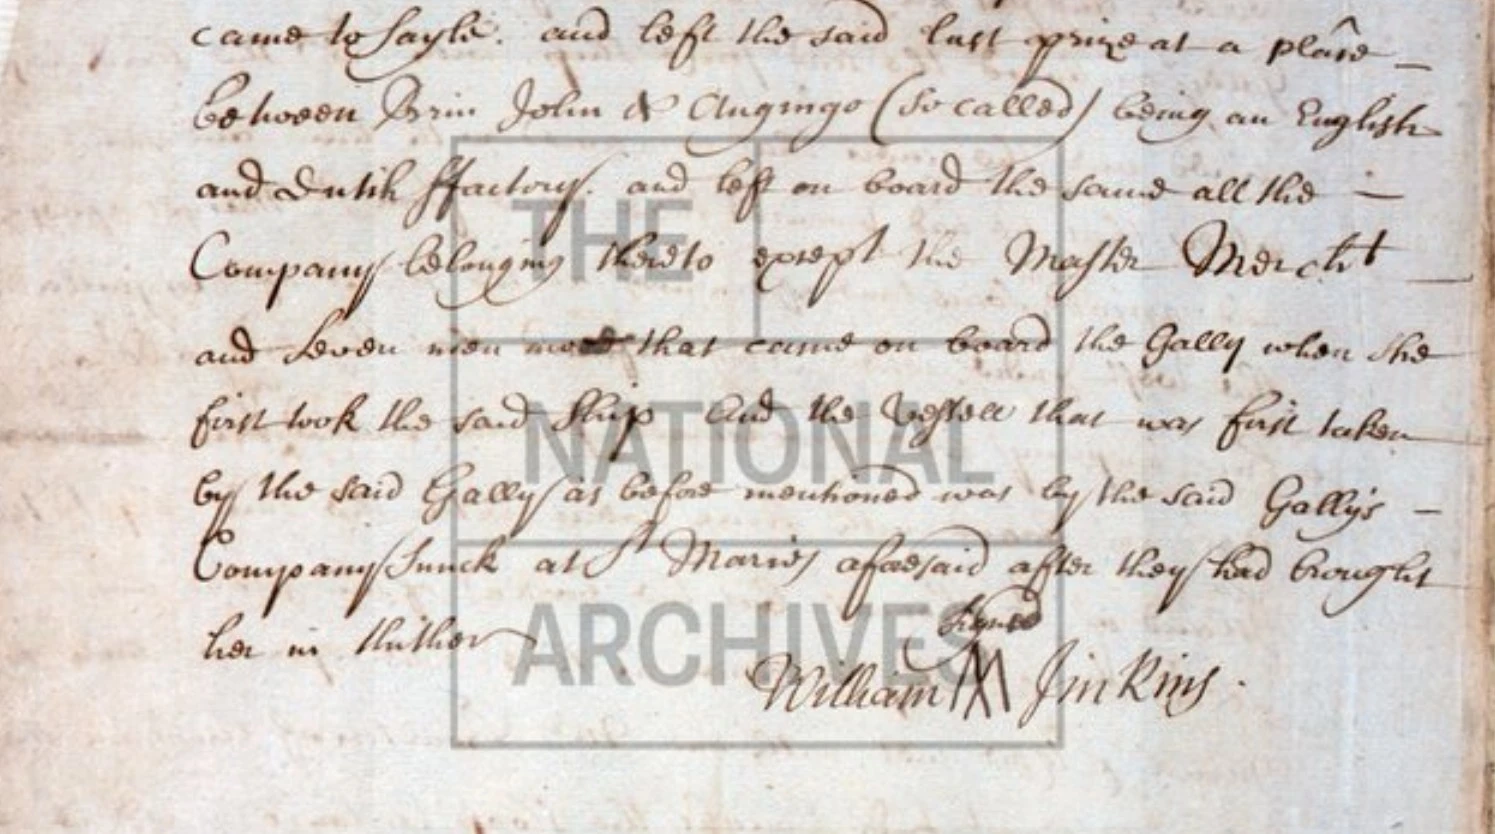 came to Sayle. and left the said last prize at a place
between Brin John & Angingo (so called) being an English
and Dutch ffactory. and left on board the same all the
Company belonging thereto except the Master Mercht
and Seven men more that came on board the Gally when she
first took the said Ship And the Vessell that was first taken
by the said Gally as before mentioned was by the said Gallys
Company Sunck at St Maries aforesaid after they had brought
her in thither
Signed
William M Jinkins.
THE
NATIONAL
ARCHIVES